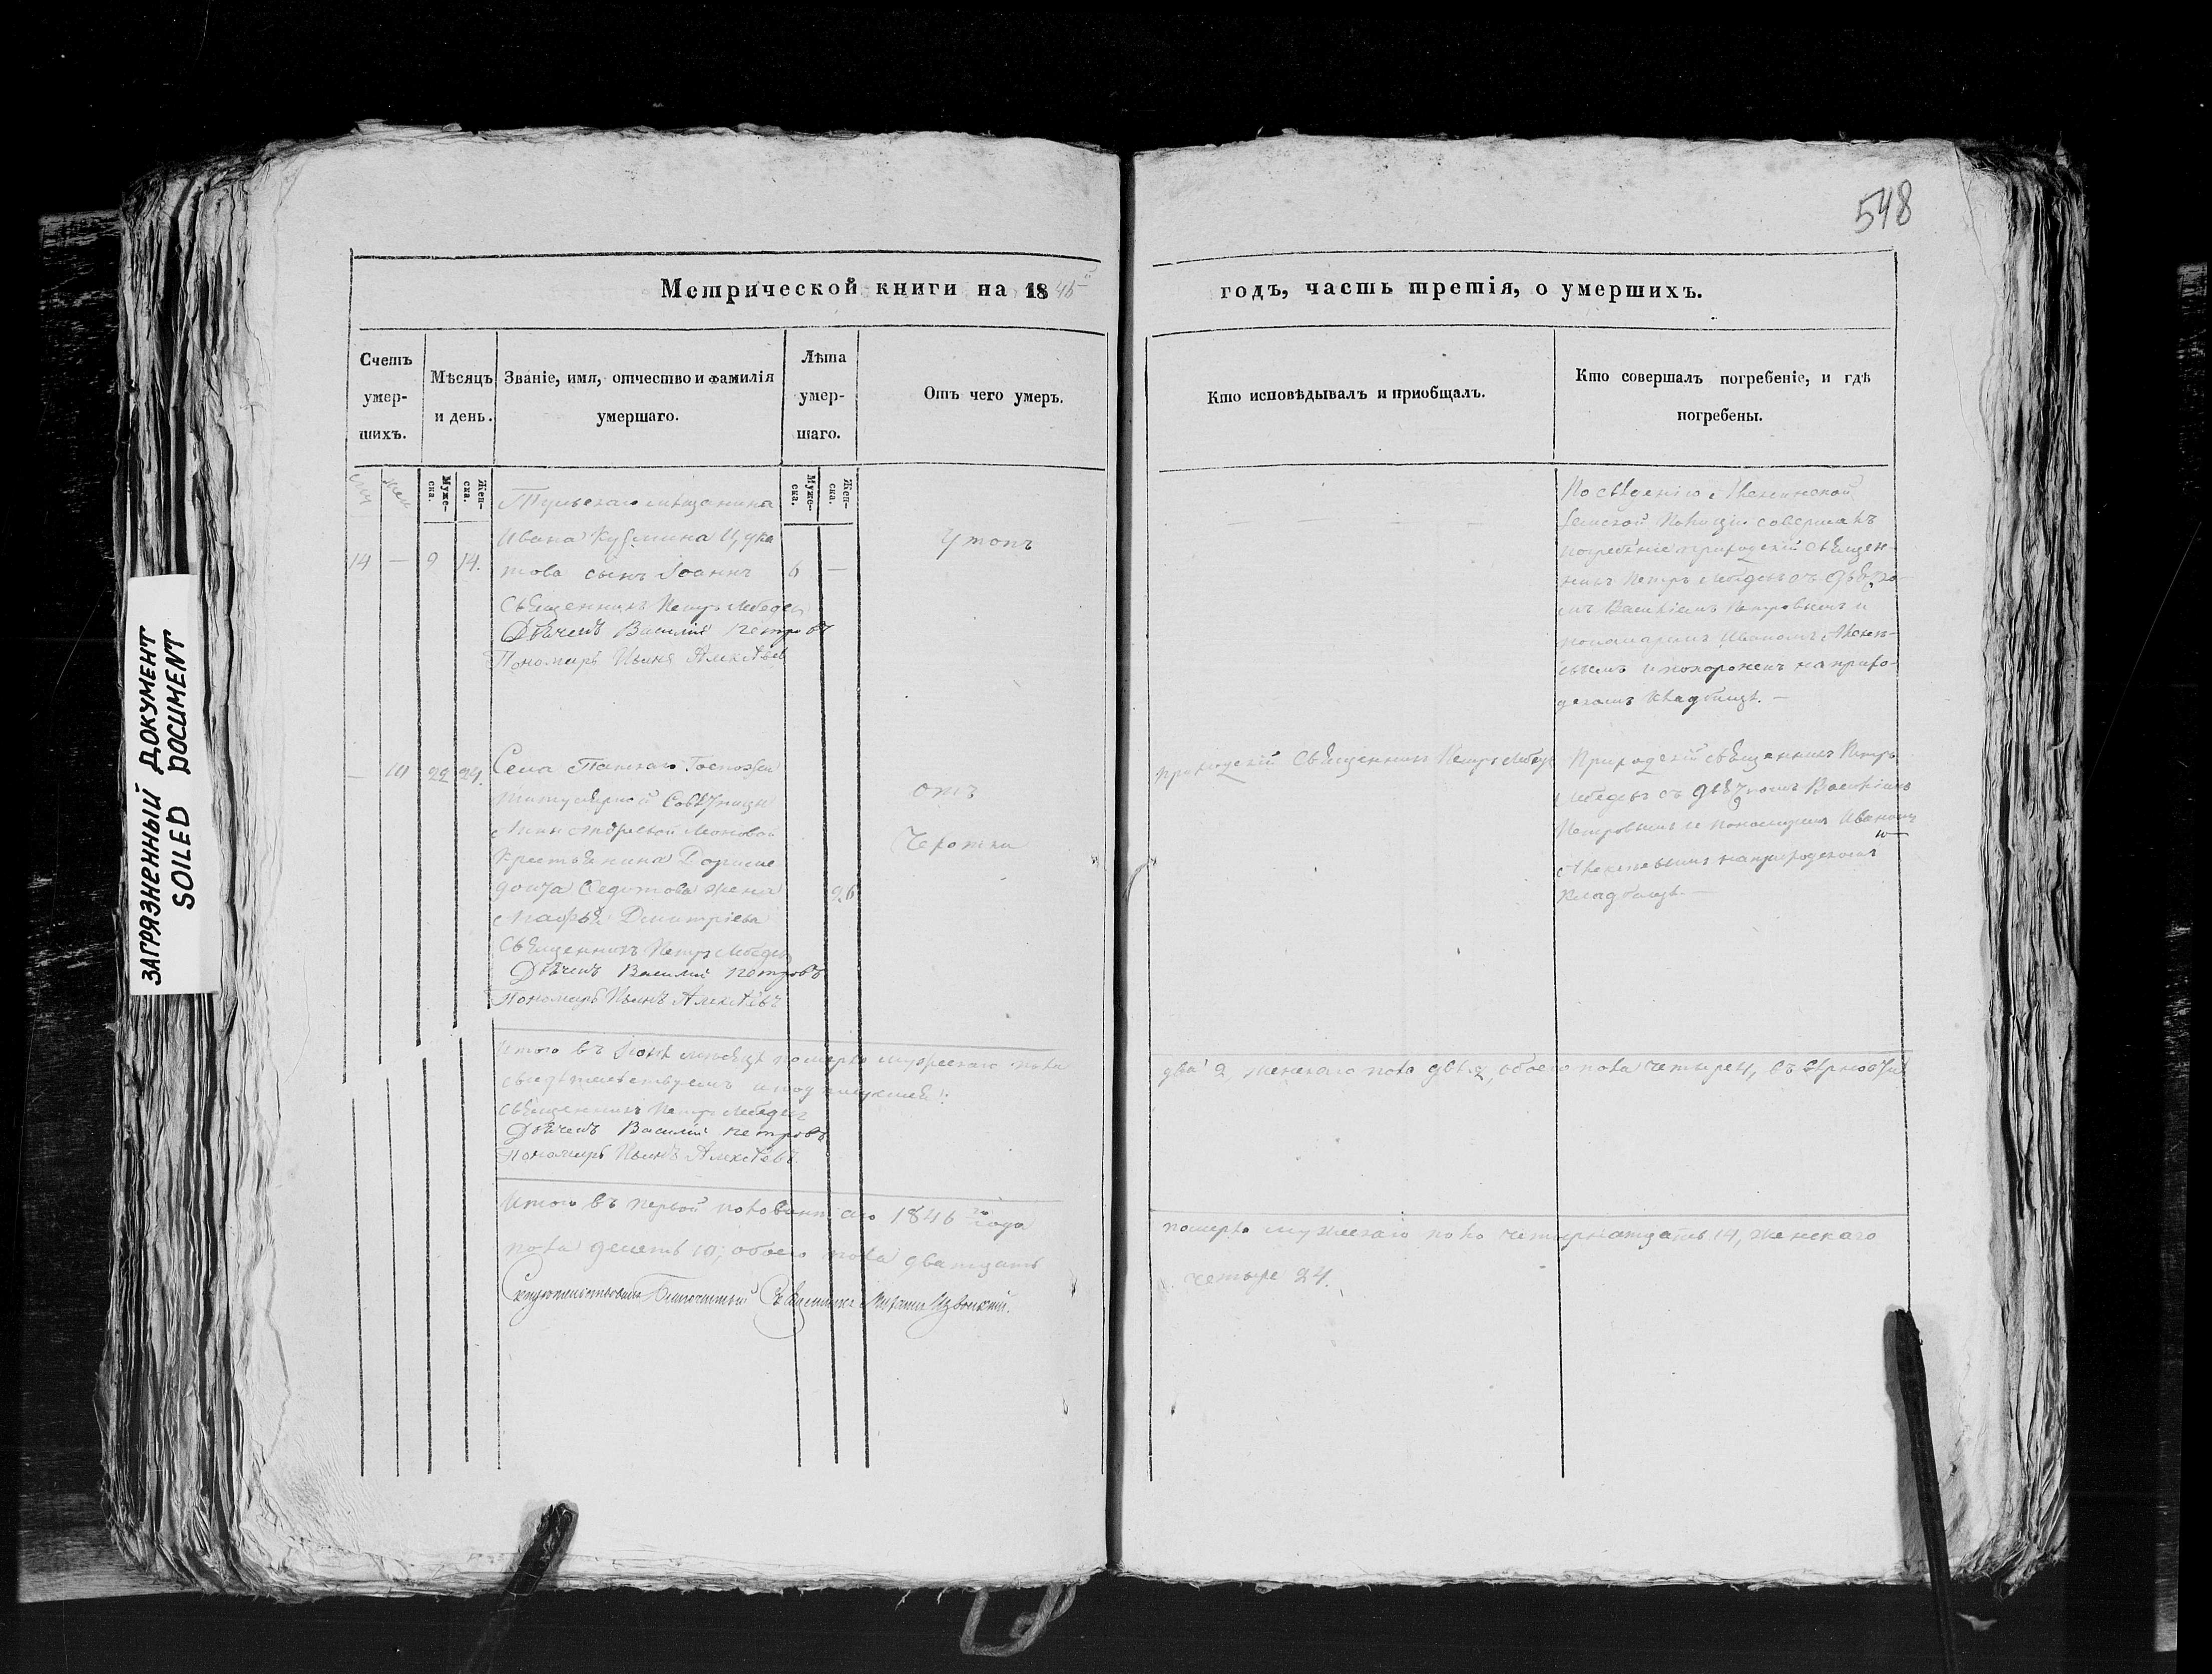 548
ЗАГРЯЗНЕННЫЙ ДОКУМЕНТ
SOILED DOCUMENT
Метрической книги на 1846й
годъ, часть третія, о умершихъ.
Счетъ
умер-
шихъ.
Мѣсяцъ
и день.
Званіе, имя, отчество и фамилія
умершаго.
Лѣта
умер-
шаго.
Отъ чего умеръ.
Кто исповѣдывалъ и пріобщалъ.
Кто совершалъ погребеніе, и гдѣ
погребены.
Муже-
ска.
Жен-
ска.
Муже-
ска.
Жен-
ска.
14 — 9 14.
Тульскаго мѣщанина
Ивана Кузмина
сынъ Іоаннъ
Священникъ Петръ Лебедевъ
Дьячекъ Василій Петровъ
Пономарь Иванъ Алексѣевъ
6 —
Утопъ
— — — —
По свѣденію
Земской Полиціи совершалъ
погребеніе приходскій Священ-
никъ Петръ Лебедевъ съ дьячко-
мъ Василіемъ Петровымъ и
пономаремъ Иваномъ Алексѣ-
евымъ и похороненъ на прихо-
дскомъ кладбищѣ. —
— 10 22 24.
Села Госпожи
титулярной Совѣтницы
Андреевой
крестьянина Дориме-
донта Федотова жена
Марфа Дмитріева
Священникъ Петръ Лебедевъ
Дьячекъ Василій Петровъ
Пономарь Иванъ Алексѣевъ
26
отъ
Чахотки
приходскій Священникъ Петръ Лебедевъ
Приходскій священникъ Петръ
Лебедевъ съ дьячкомъ Василіемъ
Петровымъ и пономаремъ Иваномъ
Алексѣевымъ на приходскомъ
кладбищѣ —
Итого въ Іюнѣ мѣсяцѣ померло мужескаго пола
два 2, женскаго пола двѣ 2, обоего пола четыре 4, въ вѣрности
свидѣтельствуемъ и подписуемся:
Священникъ Петръ Лебедевъ
Дьячекъ Василій Петровъ
Пономарь Иванъ Алексѣевъ
Итого въ первой половинѣ сего 1846го года
померло мужескаго пола четырнатцать 14, женскаго
пола десеть 10; обоего пола дватцать
четыре 24.
Свидѣтельствовалъ Благочинный Священникъ